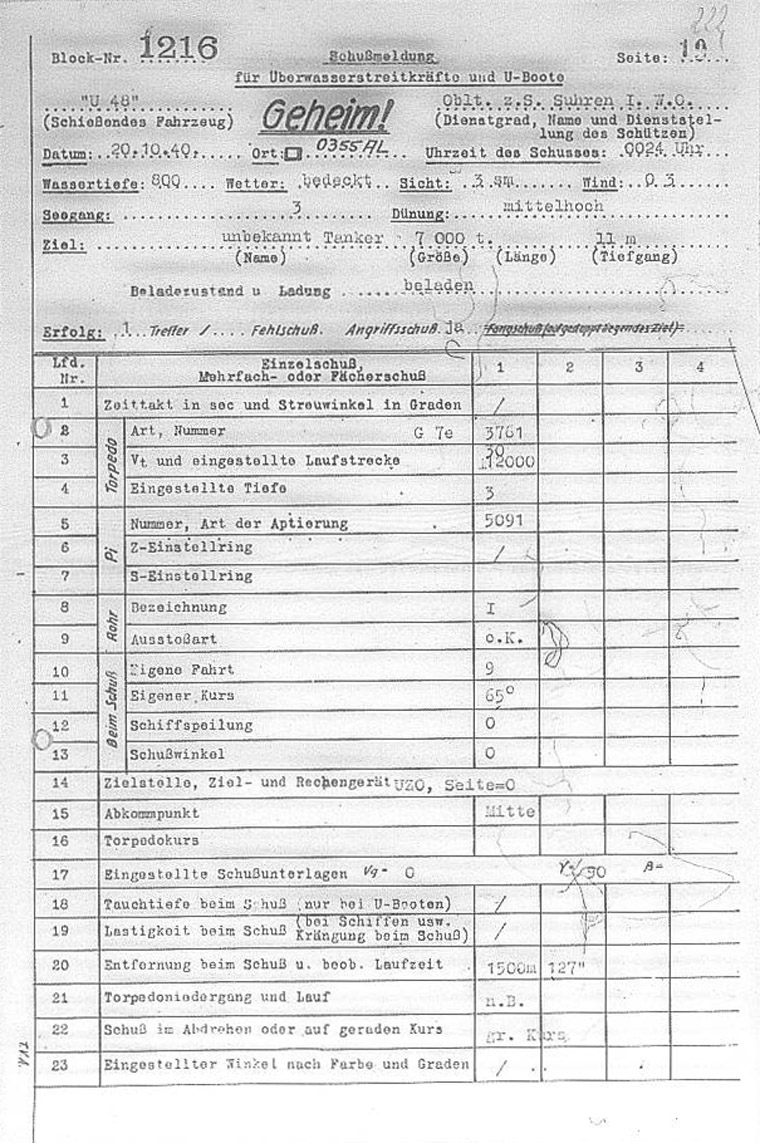 Block-Nr. 1216 Schußmeldung Seite: 19
für Überwasserstreitkräfte und U-Boote
"U 48" Geheim! Oblt. z.S. Suhren I. W.O.
(Schießendes Fahrzeug) (Dienstgrad, Name und Dienststel-
lung des Schützen)
Datum: 20.10.40. Ort: 0355 AL Uhrzeit des Schusses: 0024 Uhr
Wassertiefe: 800 Wetter: bedeckt Sicht: 3 sm Wind: 0 3
Seegang: 3 Dünung: mittelhoch
Ziel: unbekannt Tanker 7 000 t. 11 m
(Name) (Größe) (Länge) (Tiefgang)
Beladezustand u Ladung beladen
Erfolg: 1 Treffer / Fehlschuß. Angriffsschuß. ja
Lfd. Nr. Einzelschuß, Mehrfach- oder Fächerschuß 1 2 3 4
1 Zeittakt in sec und Streuwinkel in Graden /
Torpedo
2 Art, Nummer G 7e 3761
3 Vt und eingestellte Laufstrecke 30 12000
4 Eingestellte Tiefe 3
Pi
5 Nummer, Art der Aptierung 5091
6 Z-Einstellring /
7 S-Einstellring
Rohr
8 Bezeichnung I
9 Ausstoßart o.K.
Beim Schuß
10 Eigene Fahrt 9
11 Eigener Kurs 65°
12 Schiffspeilung 0
13 Schußwinkel 0
14 Zielstelle, Ziel- und Rechengerät UZO, Seite=0
15 Abkommpunkt Mitte
16 Torpedokurs
17 Eingestellte Schußunterlagen Vg= 0 γ= 90 B=
18 Tauchtiefe beim Schuß (nur bei U-Booten) /
19 Lastigkeit beim Schuß (bei Schiffen usw. Krängung beim Schuß) /
20 Entfernung beim Schuß u. beob. Laufzeit 1500m 127"
21 Torpedoniedergang und Lauf n.B.
22 Schuß im Abdrehen oder auf geraden Kurs gr. Kurs
23 Eingestellter Winkel nach Farbe und Graden /